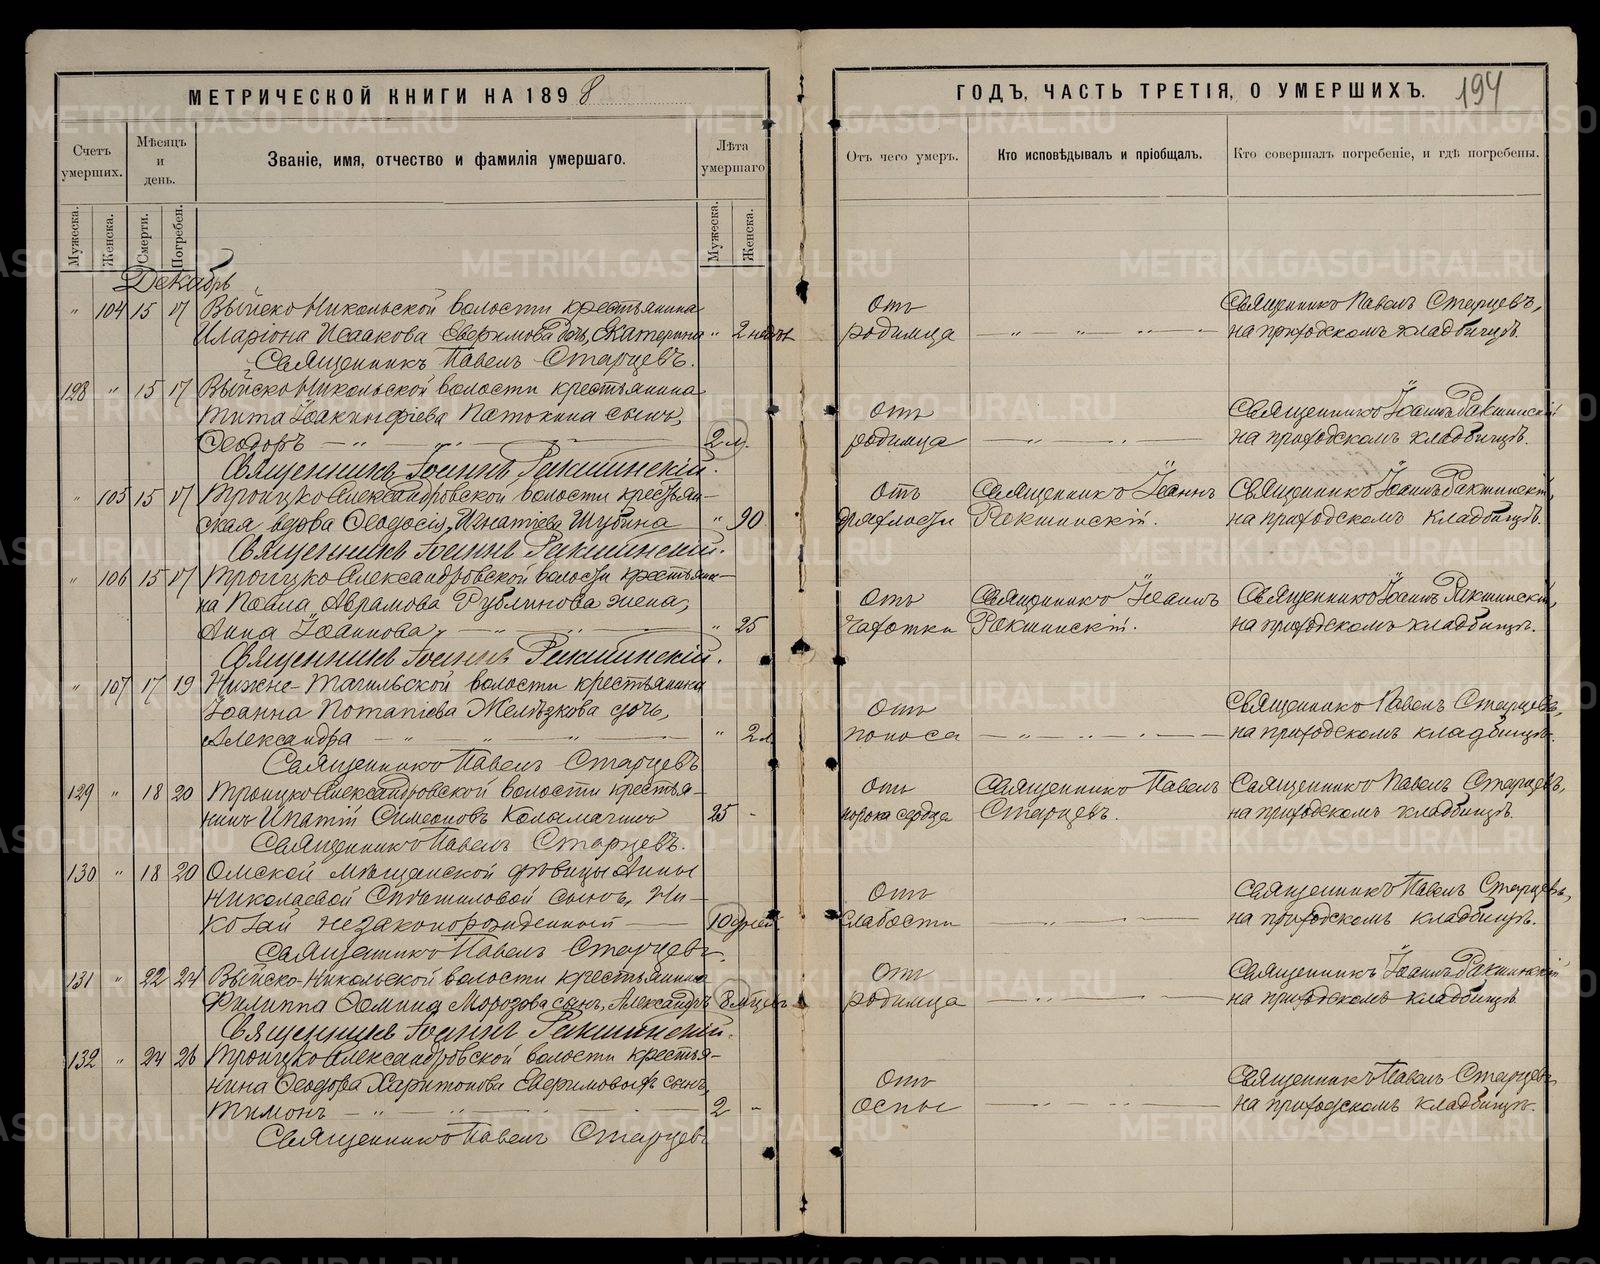 МЕТРИЧЕСКОЙ КНИГИ НА 1898
ГОДЪ, ЧАСТЬ ТРЕТІЯ, О УМЕРШИХЪ. 194
Счетъ умершихъ.
Мѣсяцъ и день.
Званіе, имя, отчество и фамилія умершаго.
Лѣта умершаго
Отъ чего умеръ.
Кто исповѣдывалъ и пріобщалъ.
Кто совершалъ погребеніе, и гдѣ погребены.
Мужеска. Женска. Смерти. Погребен. Мужеска. Женска.
Декабрь
" 104 15 17 Выйско-Никольской волости крестьянина Отъ Священникъ Павелъ Старцевъ,
Иларіона Исаакова дочь, Екатерина " 2 родимца на приходскомъ кладбищѣ.
Священникъ Павелъ Старцевъ.
128 " 15 17 Выйско-Никольской волости крестьянина
Тита Іоакинфіева Патокина сынъ, Отъ Священникъ Іоаннъ Ракшинскій
Ѳеодоръ 2 м. родимца на приходскомъ кладбищѣ.
Священникъ Іоаннъ Ракшинскій.
" 105 15 17 Троицко-Александровской волости крестьян- Отъ Священникъ Іоаннъ Священникъ Іоаннъ Ракшинскій,
ская вдова Ѳеодосія Игнатіева Шубина " 90 дряхлости Ракшинскій. на приходскомъ кладбищѣ.
Священникъ Іоаннъ Ракшинскій.
" 106 15 17 Троицко-Александровской волости крестьяни-
на Павла Аврамова жена, Отъ Священникъ Іоаннъ Священникъ Іоаннъ Ракшинскій,
Анна Іоаннова " 25 чахотки Ракшинскій. на приходскомъ кладбищѣ.
Священникъ Іоаннъ Ракшинскій.
" 107 17 19 Нижне-Тагильской волости крестьянина
Іоанна Потапіева Желѣзкова дочь, Отъ Священникъ Павелъ Старцевъ,
Александра " 2 поноса на приходскомъ кладбищѣ.
Священникъ Павелъ Старцевъ
129 " 18 20 Троицко-Александровской волости крестья- Отъ Священникъ Павелъ Священникъ Павелъ Старцевъ,
нинъ Ипатій Симеоновъ 25 - порока сердца Старцевъ. на приходскомъ кладбищѣ.
Священникъ Павелъ Старцевъ.
130 " 18 20 Омской мѣщанской дѣвицы Анны
Николаевой сынъ, Ни- Отъ Священникъ Павелъ Старцевъ,
колай незаконорожденный 10 дней слабости на приходскомъ кладбищѣ.
Священникъ Павелъ Старцевъ.
131 " 22 24 Выйско-Никольской волости крестьянина Отъ Священникъ Іоаннъ Ракшинскій
Филиппа Ѳомина Морозова сынъ, Александръ 8 мѣцевъ родимца на приходскомъ кладбищѣ
Священникъ Іоаннъ Ракшинскій.
132 " 24 26 Троицко-Александровской волости крестья-
нина Ѳеодора Харитонова сынъ, Отъ Священникъ Павелъ Старцевъ,
Тимонъ 2 " оспы на приходскомъ кладбищѣ.
Священникъ Павелъ Старцевъ
METRIKI.GASO-URAL.RU